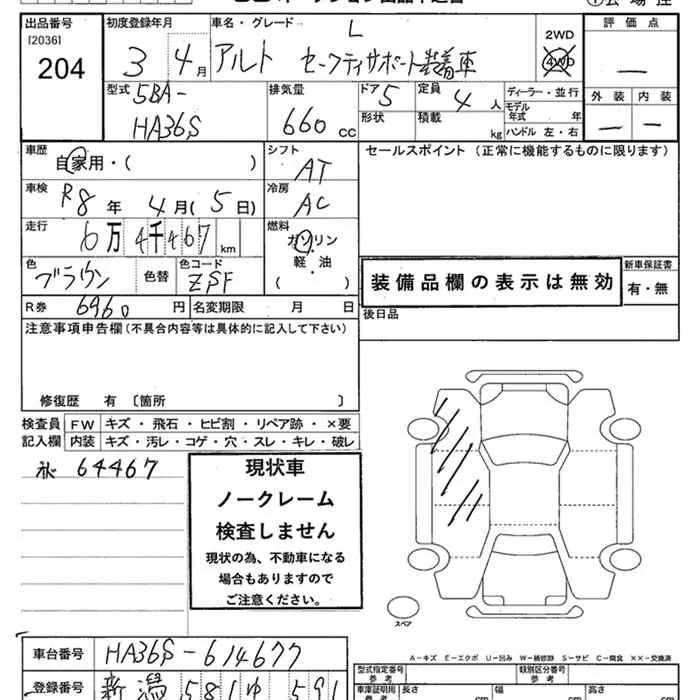 出品番号 初度登録年月 車名・グレード L 2WD 評価点
[2036] 204 3 4月 アルト セーフティサポート装着車 4WD —
型式 5BA-HA36S 排気量 660 cc ドア 5 定員 4 人 ディーラー・並行 外装 内装
形状 積載 kg モデル年式 年 ハンドル 左・右 — —
車歴 自家用・( ) シフト AT セールスポイント (正常に機能するものに限ります)
車検 R8年 4月(5日) 冷房 AC
走行 6万4千467 km 燃料 ガソリン・軽・油 ( )
色 ブラウン 色替 色コード ZSF 装備品欄の表示は無効 新車保証書 有・無
R券 6960円 名変期限 月 日 後日品
注意事項申告欄(不具合内容等は具体的に記入して下さい)
修復歴 有 〔箇所 〕
検査員 FW キズ・飛石・ヒビ割・リペア跡・×要
記入欄 内装 キズ・汚レ・コゲ・穴・スレ・キレ・破レ
64467
現状車
ノークレーム
検査しません
現状の為、不動車になる
場合もありますので
ご注意ください。
スペア
A－キズ E－エクボ U－凹み W－補修跡 S－サビ C－腐食 ××－交換済
車台番号 HA36S-614677 型式指定番号 参考 類別区分番号 参考
登録番号 新潟 581 ゆ 591 車庫証明用 参考 長さ cm 幅 cm 高さ cm